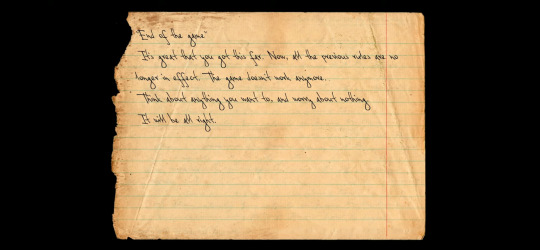 "End of the game"
It's great that you got this far. Now, all the previous rules are no
longer in effect. The game doesn't work anymore.
Think about anything you want to, and worry about nothing
It will be all right.